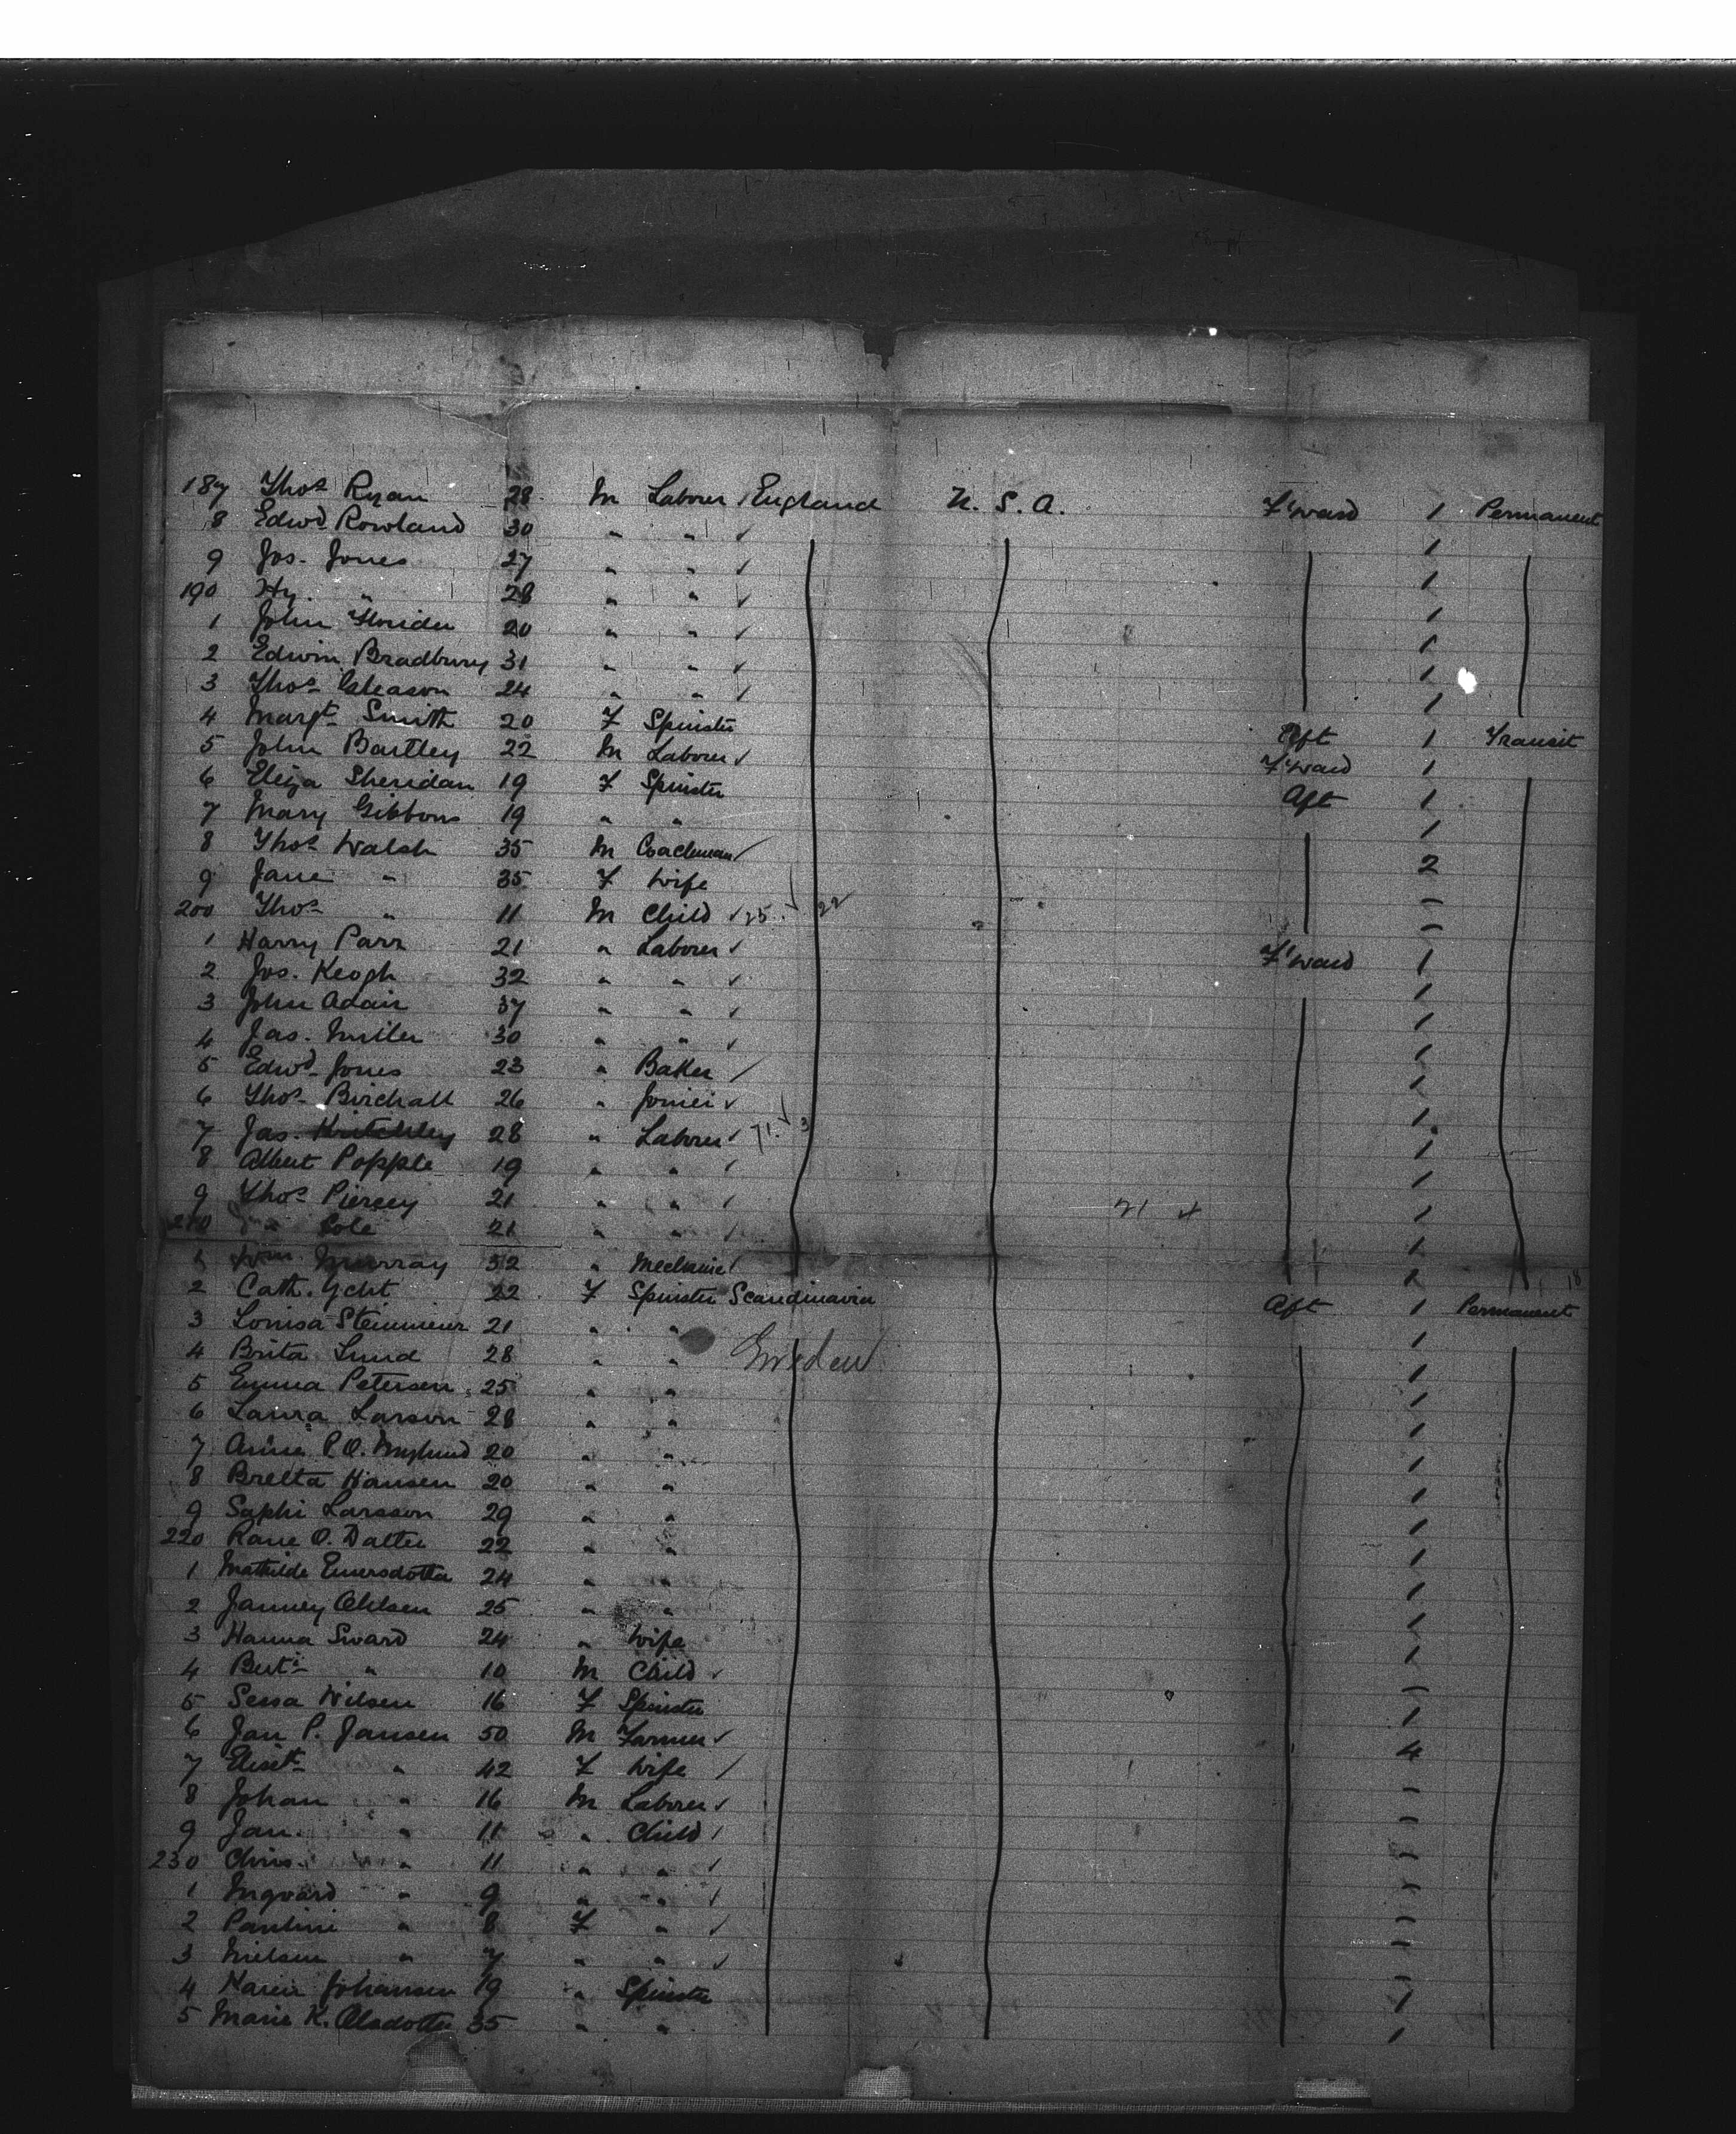 187 Thos Ryan 28 M Laborer England U. S. A. F'ward 1 Permanent
8 Edwd Rowland 30 " " ✓ 1
9 Jos. Jones 27 " " ✓ 1
190 Hy. " 28 " " ✓ 1
1 John 20 " " ✓ 1
2 Edwin Bradbury 31 " " ✓ 1
3 Thos Gleason 24 " " ✓ 1
4 Margt Smith 20 F Spinster Aft 1 Transit
5 John Bartley 22 M Laborer ✓ F'ward 1
6 Eliza Sheridan 19 F Spinster Aft 1
7 Mary Gibbons 19 " " 1
8 Thos Walsh 35 M Coachman ✓ 2
9 Jane " 35 F Wife –
200 Thos " 11 M Child ✓ 25 ✓ 22 –
1 Harry Parr 21 " Laborer ✓ F'ward 1
2 Jos. Keogh 32 " " ✓ 1
3 John Adair 37 " " ✓ 1
4 Jas. Miller 30 " " ✓ 1
5 Edwd Jones 23 " Baker ✓ 1
6 Thos Birchall 26 " Joiner ✓ 1
7 Jas. 28 " Laborer ✓ 71 ✓ 3 1
8 Albert Popple 19 " " ✓ 1
9 Thos Piercey 21 " " ✓ 21 1
210 " Cole 21 " " ✓ 1
1 Wm. Murray 32 " Mechanic ✓ 1 18
2 Cath. Ycht 22 F Spinster Scandinavia Aft 1 Permanent
3 Louisa 21 " " 1
4 Brita Lund 28 " " Sweden 1
5 Emma Petersen 25 " " 1
6 Laura Larson 28 " " 1
7 Anna P.O. 20 " " 1
8 Bretta Hansen 20 " " 1
9 Saphi Larsson 29 " " 1
220 Rane O. Datter 22 " " 1
1 Mathilde 24 " " 1
2 Janney Ohlsen 25 " " 1
3 Hanna Sward 24 " Wife 1
4 Bert " 10 M Child ✓ –
5 Sessa Nilsen 16 F Spinster 1
6 Jan P. Jansen 50 M Farmer ✓ 4
7 Elisth " 42 F Wife ✓ –
8 Johan " 16 M Laborer ✓ –
9 Jan. " 11 " Child ✓ –
230 Chris. " 11 " " ✓ –
1 Ingvard " 9 " " ✓ –
2 Pauline " 8 F " ✓ –
3 Nielsen " 7 " " ✓ –
4 Karen Johansen 19 " Spinster 1
5 Marie K. Olsdotter 35 " " 1